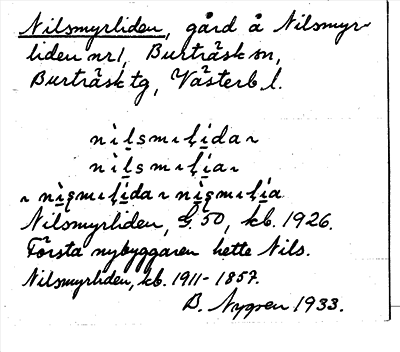 Nilsmyrliden, gård å Nilsmyr-
liden nr 1, Burträsk sn,
Burträsk tg, Västerb l.
Nilsmyrliden, G. 50, kb. 1926.
Första nybyggaren hette Nils.
Nilsmyrliden, kb. 1911-1857.
B. Nygren 1933.